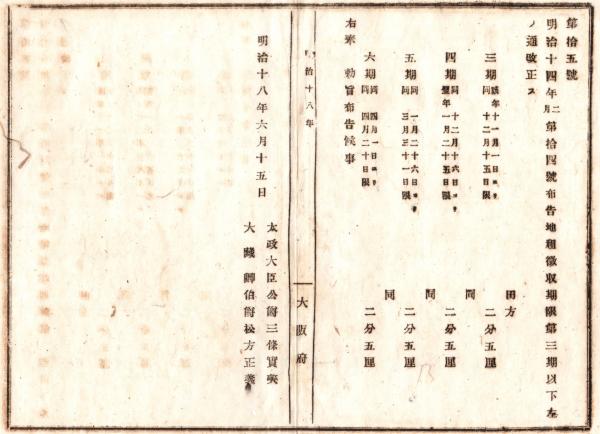 第拾五號
明治十四年二月第拾四號布告地租徵収期限第三期以下左
ノ通改正ス
田方
三期 該年十一月一日ヨリ 同十二月十五日限 二分五厘
同
四期 同十二月十六日ヨリ 翌年一月二十五日限 二分五厘
同
五期 同一月二十六日ヨリ 同三月三十一日限 二分五厘
同
六期 同四月一日ヨリ 同四月二十日限 二分五厘
右奉 勅旨布告候事
治十八年
大阪府
明治十八年六月十五日
太政大臣公爵三條實美
大藏卿伯爵松方正義